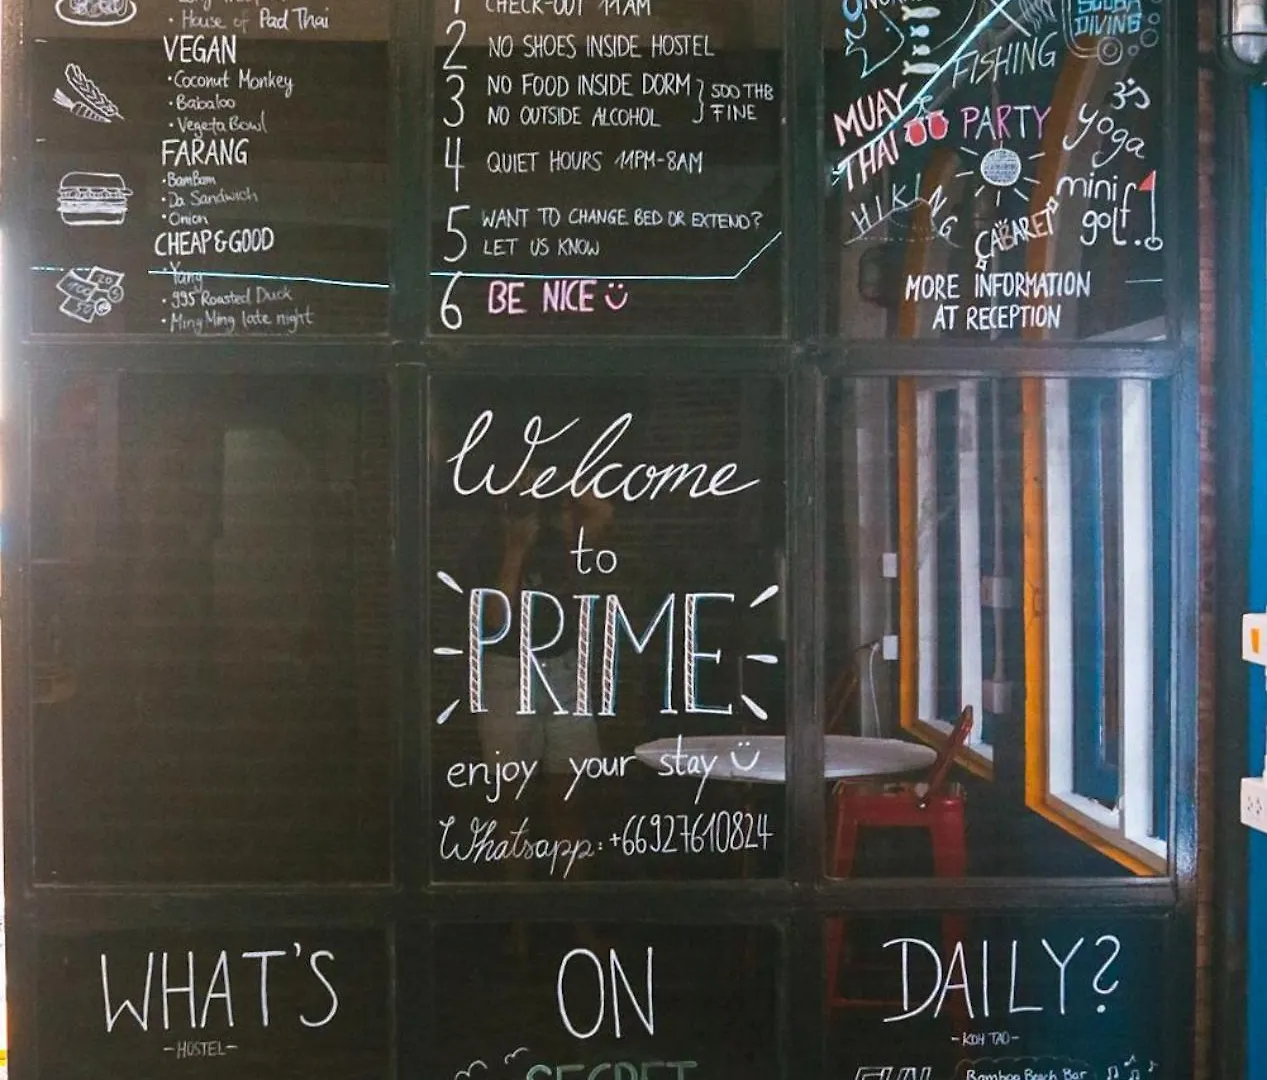 House of Pad Thai
VEGAN
Coconut Monkey
Babaloo
Vegeta Bowl
FARANG
BamBam
Da Sandwich
Onion
CHEAP & GOOD
Yang
995 Roasted Duck
Ming Ming late night
1 CHECK-OUT 11AM
2 NO SHOES INSIDE HOSTEL
3 NO FOOD INSIDE DORM
NO OUTSIDE ALCOHOL
500 THB
FINE
4 QUIET HOURS 11PM-8AM
5 WANT TO CHANGE BED OR EXTEND?
LET US KNOW
6 BE NICE
SCUBA
DIVING
FISHING
MUAY
THAI
PARTY
yoga
HIKING
CABARET
mini
golf
MORE INFORMATION
AT RECEPTION
Welcome
to
PRIME
enjoy your stay
Whatsapp: +66927610824
WHAT'S ON DAILY?
-HOSTEL-
-KOH TAO-
SECRET
Bamboo Beach Bar